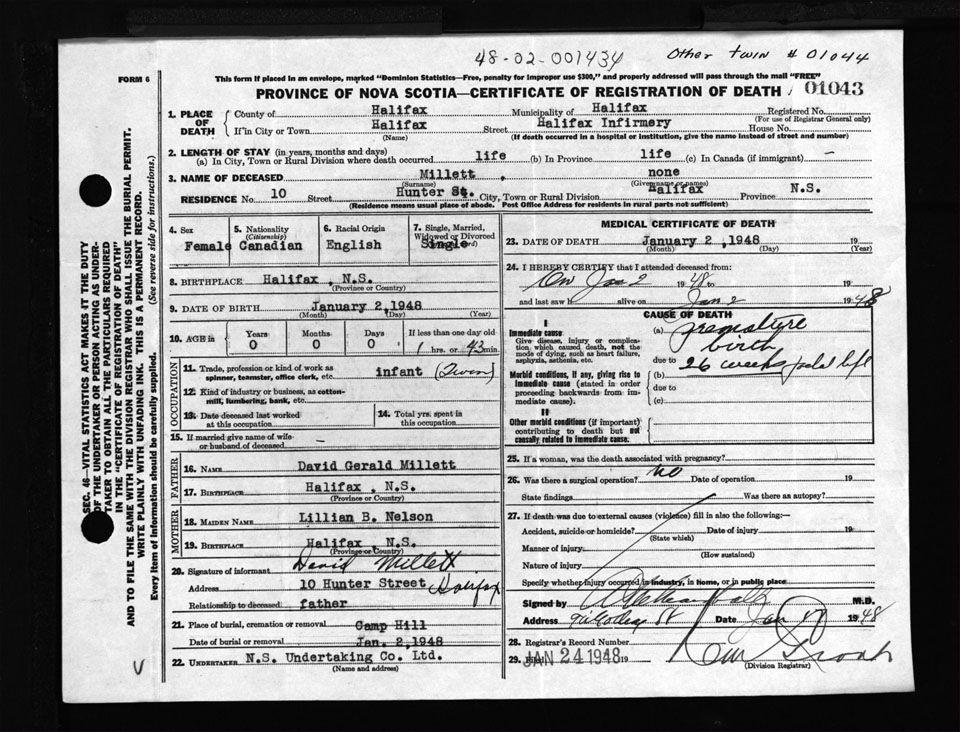 48-02-001434
Other twin # 01044
FORM 6
This form if placed in an envelope, marked "Dominion Statistics—Free, penalty for improper use $300," and properly addressed will pass through the mail "FREE"
PROVINCE OF NOVA SCOTIA—CERTIFICATE OF REGISTRATION OF DEATH 01043
SEC. 46—VITAL STATISTICS ACT MAKES IT THE DUTY
OF THE UNDERTAKER OR PERSON ACTING AS UNDER-
TAKER TO OBTAIN ALL THE PARTICULARS REQUIRED
IN THE "CERTIFICATE OF REGISTRATION OF DEATH"
AND TO FILE THE SAME WITH THE DIVISION REGISTRAR WHO SHALL ISSUE THE BURIAL PERMIT.
WRITE PLAINLY WITH UNFADING INK. THIS IS A PERMANENT RECORD.
Every item of information should be carefully supplied. (See reverse side for instructions.)
1. PLACE OF DEATH
County of Halifax Municipality of Halifax Registered No.
(For use of Registrar General only)
If in City or Town Halifax Street Halifax Infirmery House No.
(Name) (If death occurred in a hospital or institution, give the name instead of street and number)
2. LENGTH OF STAY (in years, months and days)
(a) In City, Town or Rural Division where death occurred life (b) In Province life (c) In Canada (if immigrant) —
3. NAME OF DECEASED Millett , none
(Surname) (Given name or names)
RESIDENCE No. 10 Street Hunter St. City, Town or Rural Division Halifax Province N.S.
(Residence means usual place of abode. Post Office Address for residents in rural parts not sufficient)
4. Sex Female
5. Nationality (Citizenship) Canadian
6. Racial Origin English
7. Single, Married, Widowed or Divorced Single
8. BIRTHPLACE Halifax, N.S.
(Province or Country)
9. DATE OF BIRTH January 2, 1948
(Month) (Day) (Year)
10. AGE in Years 0 Months 0 Days 0 If less than one day old 1 hrs. or 43 min.
OCCUPATION
11. Trade, profession or kind of work as spinner, teamster, office clerk, etc. infant (Twin)
12. Kind of industry or business, as cotton-mill, lumbering, bank, etc.
13. Date deceased last worked at this occupation
14. Total yrs. spent in this occupation
15. If married give name of wife or husband of deceased —
FATHER
16. NAME David Gerald Millett
17. BIRTHPLACE Halifax , N.S.
(Province or Country)
MOTHER
18. MAIDEN NAME Lillian B. Nelson
19. BIRTHPLACE Halifax, N.S.
(Province or Country)
20. Signature of informant David Millett
Address 10 Hunter Street Halifax
Relationship to deceased father
21. Place of burial, cremation or removal Camp Hill
Date of burial or removal Jan. 2, 1948
22. UNDERTAKER N.S. Undertaking Co. Ltd.
(Name and address)
MEDICAL CERTIFICATE OF DEATH
23. DATE OF DEATH January 2, 1948 19
(Month) (Day) (Year)
24. I HEREBY CERTIFY that I attended deceased from:
On Jan 2 1948 to 19
and last saw h alive on Jan 2 1948
CAUSE OF DEATH
I
Immediate cause
Give disease, injury or complication which caused death, not the mode of dying, such as heart failure, asphyxia, asthenia, etc.
(a) Premature birth
due to
Morbid conditions, if any, giving rise to immediate cause (stated in order proceeding backwards from immediate cause).
(b) 26 weeks
due to
(c)
II
Other morbid conditions (if important) contributing to death but not causally related to immediate cause.
25. If a woman, was the death associated with pregnancy?
26. Was there a surgical operation? no Date of operation 19
State findings Was there an autopsy?
27. If death was due to external causes (violence) fill in also the following:—
Accident, suicide or homicide? Date of injury 19
(State which)
Manner of injury
(How sustained)
Nature of injury
Specify whether injury occurred in industry, in home, or in public place
Signed by M.D.
Address St Date Jan 1948
28. Registrar's Record Number
29. Filed JAN 24 1948 19
(Division Registrar)